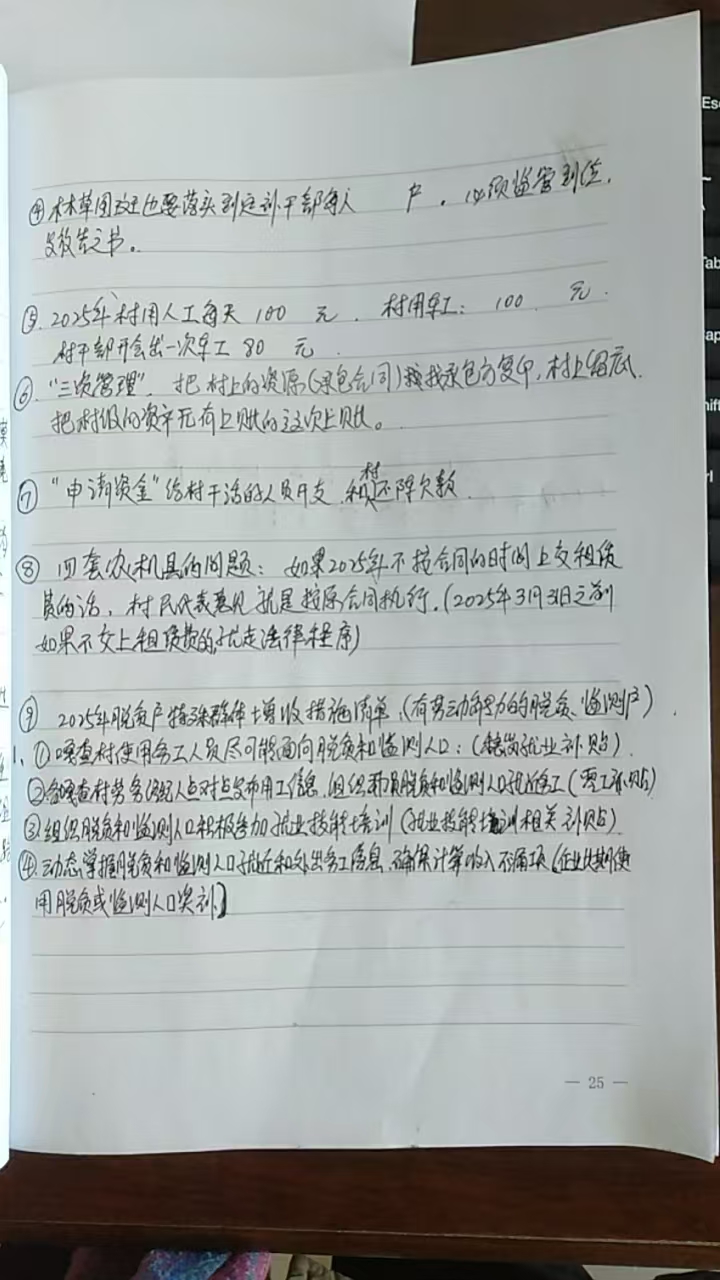 ④ 林草图斑也要落实到定补干部每人 户。必须监管到位,
发放告之书。
⑤. 2025年村用人工每天 100 元. 村用车工: 100. 元.
村干部开会出一次车工 80 元.
⑥. "三资管理". 把村上的资源(承包合同)找承包方复印, 村上留底.
把村级的资产无有上账的这次上账。
⑦ "申请资金"给村干活的人员开支. 和村还陈欠款.
⑧ 四套农机具的问题: 如果2025年不按合同的时间上交租赁
费的话, 村民代表意见就是按原合同执行. (2025年3月31日之前
如果不交上租赁费的,就走法律程序)
⑨ 2025年脱贫户特殊群体增收措施清单, (有劳动能力的脱贫、监测户).
1、①嘎查村使用务工人员尽可能面向脱贫和监测人口: (稳岗就业补贴).
②各嘎查村劳务经纪人点对点发布用工信息, 组织脱贫和监测人口就近务工 (零工补贴)
③组织脱贫和监测人口积极参加就业技能培训 (就业技能培训相关补贴)
④. 动态掌握脱贫和监测人口就近和外出务工信息, 确保计算收入不漏项, (企业使
用脱贫或监测人口奖补.)
— 25 —
Esc
Tab